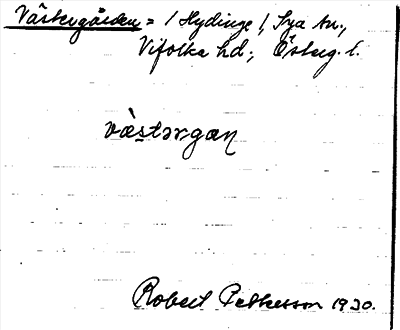 Västergården = / Hydinge / Sya sn.,
Vifolka hd., Österg. l.
västərgan
Robert Pettersson 1930.